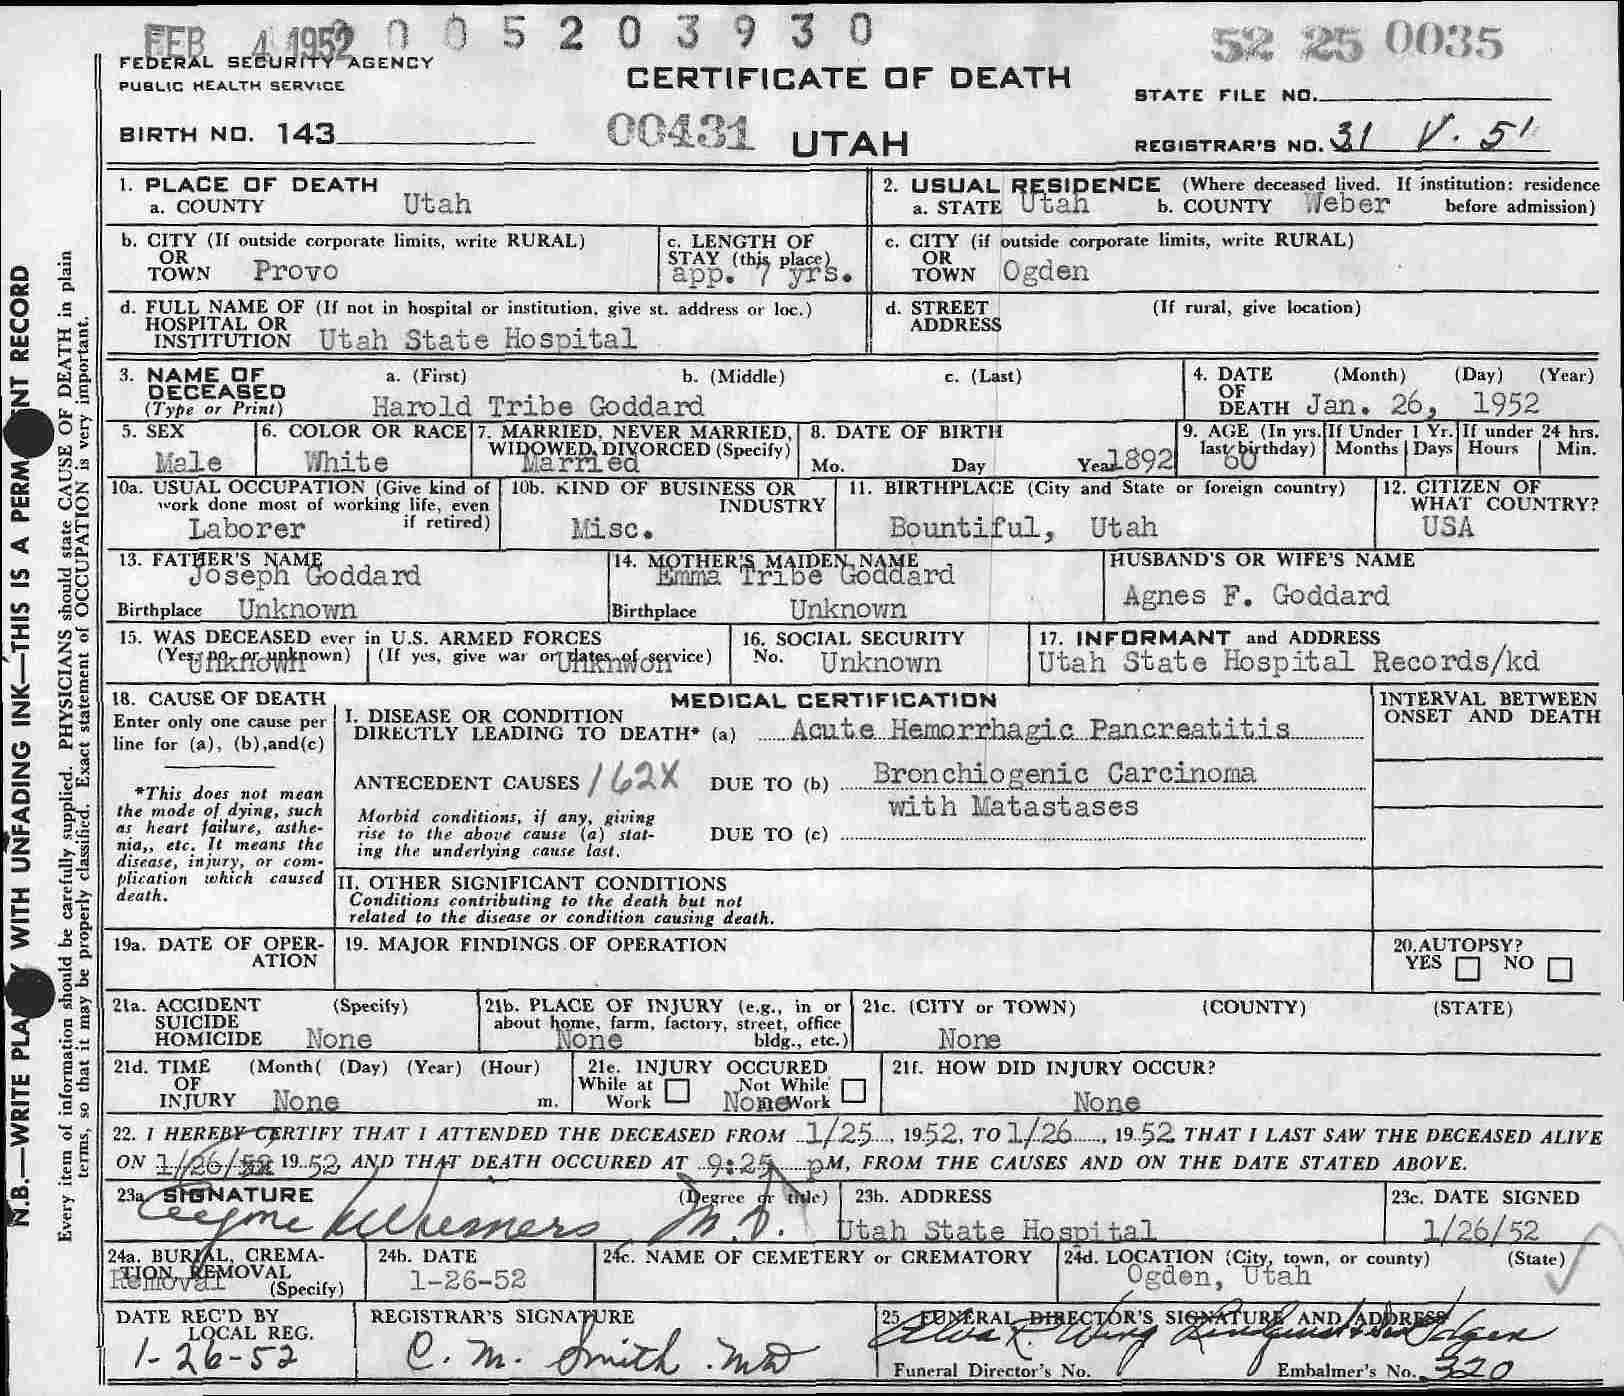 FEB 4 1952 0 0 5 2 0 3 9 3 0 52 25 0035
FEDERAL SECURITY AGENCY
PUBLIC HEALTH SERVICE
CERTIFICATE OF DEATH
STATE FILE NO.
BIRTH NO. 143
00431 UTAH
REGISTRAR'S NO. 31 V. 51
1. PLACE OF DEATH
a. COUNTY Utah
2. USUAL RESIDENCE (Where deceased lived. If institution: residence
a. STATE Utah b. COUNTY Weber before admission)
b. CITY (If outside corporate limits, write RURAL)
OR
TOWN Provo
c. LENGTH OF
STAY (this place)
app. 7 yrs.
c. CITY (if outside corporate limits, write RURAL)
OR
TOWN Ogden
d. FULL NAME OF (If not in hospital or institution, give st. address or loc.)
HOSPITAL OR
INSTITUTION Utah State Hospital
d. STREET (If rural, give location)
ADDRESS
3. NAME OF a. (First) b. (Middle) c. (Last)
DECEASED
(Type or Print) Harold Tribe Goddard
4. DATE (Month) (Day) (Year)
OF
DEATH Jan. 26, 1952
5. SEX
Male
6. COLOR OR RACE
White
7. MARRIED, NEVER MARRIED,
WIDOWED, DIVORCED (Specify)
Married
8. DATE OF BIRTH
Mo. Day Year 1892
9. AGE (In yrs.
last birthday)
60
If Under 1 Yr.
Months Days
If under 24 hrs.
Hours Min.
10a. USUAL OCCUPATION (Give kind of
work done most of working life, even
if retired)
Laborer
10b. KIND OF BUSINESS OR
INDUSTRY
Misc.
11. BIRTHPLACE (City and State or foreign country)
Bountiful, Utah
12. CITIZEN OF
WHAT COUNTRY?
USA
13. FATHER'S NAME
Joseph Goddard
Birthplace Unknown
14. MOTHER'S MAIDEN NAME
Emma Tribe Goddard
Birthplace Unknown
HUSBAND'S OR WIFE'S NAME
Agnes F. Goddard
15. WAS DECEASED ever in U.S. ARMED FORCES
(Yes, no, or unknown) (If yes, give war or dates of service)
Unknown Unknwon
16. SOCIAL SECURITY
No. Unknown
17. INFORMANT and ADDRESS
Utah State Hospital Records/kd
18. CAUSE OF DEATH
Enter only one cause per
line for (a), (b),and(c)
*This does not mean
the mode of dying, such
as heart failure, asthe-
nia,, etc. It means the
disease, injury, or com-
plication which caused
death.
MEDICAL CERTIFICATION
I. DISEASE OR CONDITION
DIRECTLY LEADING TO DEATH* (a) Acute Hemorrhagic Pancreatitis
ANTECEDENT CAUSES 162X DUE TO (b) Bronchiogenic Carcinoma
with Matastases
Morbid conditions, if any, giving
rise to the above cause (a) stat-
ing the underlying cause last.
DUE TO (c)
INTERVAL BETWEEN
ONSET AND DEATH
II. OTHER SIGNIFICANT CONDITIONS
Conditions contributing to the death but not
related to the disease or condition causing death.
19a. DATE OF OPER-
ATION
19. MAJOR FINDINGS OF OPERATION
20. AUTOPSY?
YES NO
21a. ACCIDENT (Specify)
SUICIDE
HOMICIDE None
21b. PLACE OF INJURY (e.g., in or
about home, farm, factory, street, office
bldg., etc.)
None
21c. (CITY or TOWN) (COUNTY) (STATE)
None
21d. TIME (Month( (Day) (Year) (Hour)
OF
INJURY None m.
21e. INJURY OCCURED
While at Work Not While Work
None
21f. HOW DID INJURY OCCUR?
None
22. I HEREBY CERTIFY THAT I ATTENDED THE DECEASED FROM 1/25, 1952, TO 1/26, 1952 THAT I LAST SAW THE DECEASED ALIVE
ON 1/26/52 1952 AND THAT DEATH OCCURED AT 9:25 pM, FROM THE CAUSES AND ON THE DATE STATED ABOVE.
23a SIGNATURE (Degree or title)
M.D.
23b. ADDRESS
Utah State Hospital
23c. DATE SIGNED
1/26/52
24a. BURIAL, CREMA-
TION, REMOVAL
(Specify)
Removal
24b. DATE
1-26-52
24c. NAME OF CEMETERY or CREMATORY
24d. LOCATION (City, town, or county) (State)
Ogden, Utah
DATE REC'D BY
LOCAL REG.
1-26-52
REGISTRAR'S SIGNATURE
C. M. Smith MD
25. FUNERAL DIRECTOR'S SIGNATURE AND ADDRESS
Ogden
Funeral Director's No. Embalmer's No. 320
N.B.—WRITE PLA WITH UNFADING INK—THIS IS A PERM NT RECORD
Every item of information should be carefully supplied. PHYSICIANS should state CAUSE OF DEATH in plain
terms, so that it may be properly classified. Exact statement of OCCUPATION is very important.